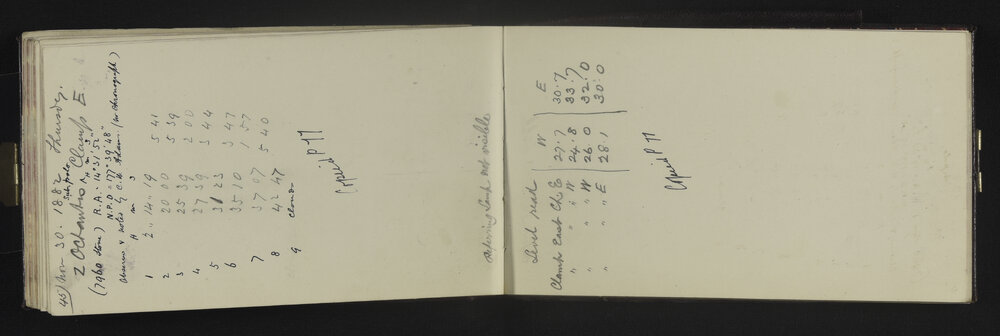 45) Nov 30. 1882 Thursday.
Sub polo
Z Octantis Clamp E
(7960 Stone) R.A. 14h 31m 52s
N.P.D. 177° 39' 48"
Observer & notes by C.W. Adams. (no Chronograph)
H m s
1 2 " 14 " 19 5 41
2 20 00 5 39
3 25 39 2 00
4 27 39 3 44
5 31 23 3 47
6 35 10 1 57
7 37 07 5 40
8 42 47
9 clouds
Copied P 77
Referring Lamp not visible
Level read W E
Clamp East Ch. E 27.7 30.7
" " W 24.8 33.7
" " W 26 0 32.0
" " E 28 1 30.0
Copied P 77